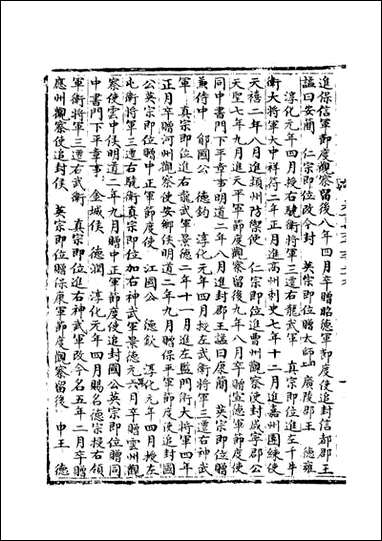 進保信軍節度觀察留後八年四月卒贈昭德軍節度使追封信都郡王
諡曰安簡 仁宗即位改今封 英宗即位贈太師 廣陵郡王 德雍
淳化元年四月授右驍衛將軍三遷右龍武軍 真宗即位進左千牛
衛大將軍大中祥符二年正月進高州刺史七年十二月進嘉州團練使
天禧二年八月進潁州防禦使 仁宗即位進曹州觀察使封咸寧郡公
天聖七年九月進天平軍節度觀察留後九年八月卒贈宣德軍節度使
同中書門下平章事明道二年八月進封郡王諡曰康簡 英宗即位贈
兼侍中 鄖國公 德鈞 淳化元年四月授左武衛將軍三遷右神武
軍 真宗即位進右龍武軍景德二年十一月進左監門衛大將軍四年
正月卒贈河州觀察使安鄉侯明道二年九月贈保平軍節度使追封國
公英宗即位贈中正軍節度使 江國公 德欽 淳化元年四月授左
屯衛將軍三遷右驍衛真宗即位加右神武軍景德元六月卒贈雲州觀
察使雲中侯明道二年九月贈中正軍節度使追封國公英宗即位贈同
中書門下平章事 金城侯 德潤 淳化元年四月賜名德宗授右領
軍衛將軍三遷右武衛 真宗即位進右神武軍改今名五年二月卒贈
應州觀察使追封侯 英宗即位贈保康軍節度觀察留後 申王 德